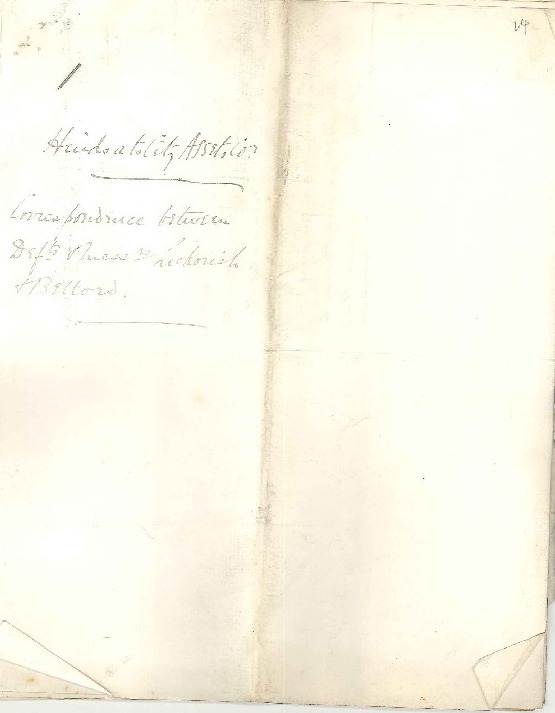 14
Hinds ats City Assets Co.
Correspondence between
Defts & Messrs Lickorish
& Bellord.